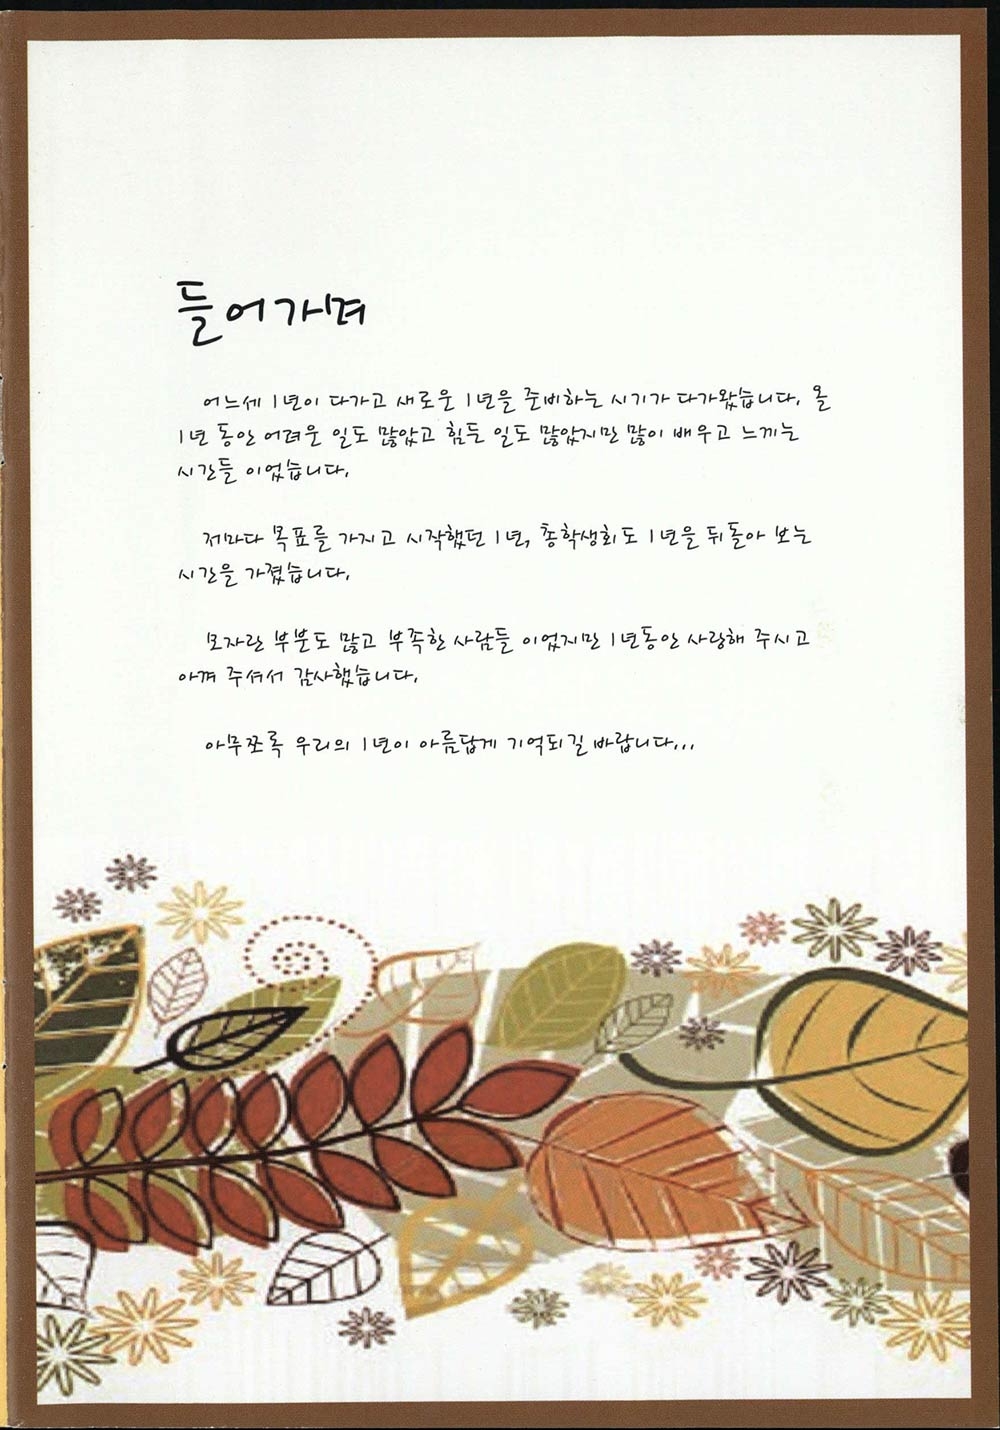 들어가며
어느세 1년이 다가고 새로운 1년을 준비하는 시기가 다가왔습니다. 올
1년 동안 어려운 일도 많았고 힘든 일도 많았지만 많이 배우고 느끼는
시간들 이었습니다.
저마다 목표를 가지고 시작했던 1년, 총학생회도 1년을 뒤돌아 보는
시간을 가졌습니다.
모자란 부분도 많고 부족한 사람들 이었지만 1년동안 사랑해 주시고
아껴 주셔서 감사했습니다.
아무쪼록 우리의 1년이 아름답게 기억되길 바랍니다...